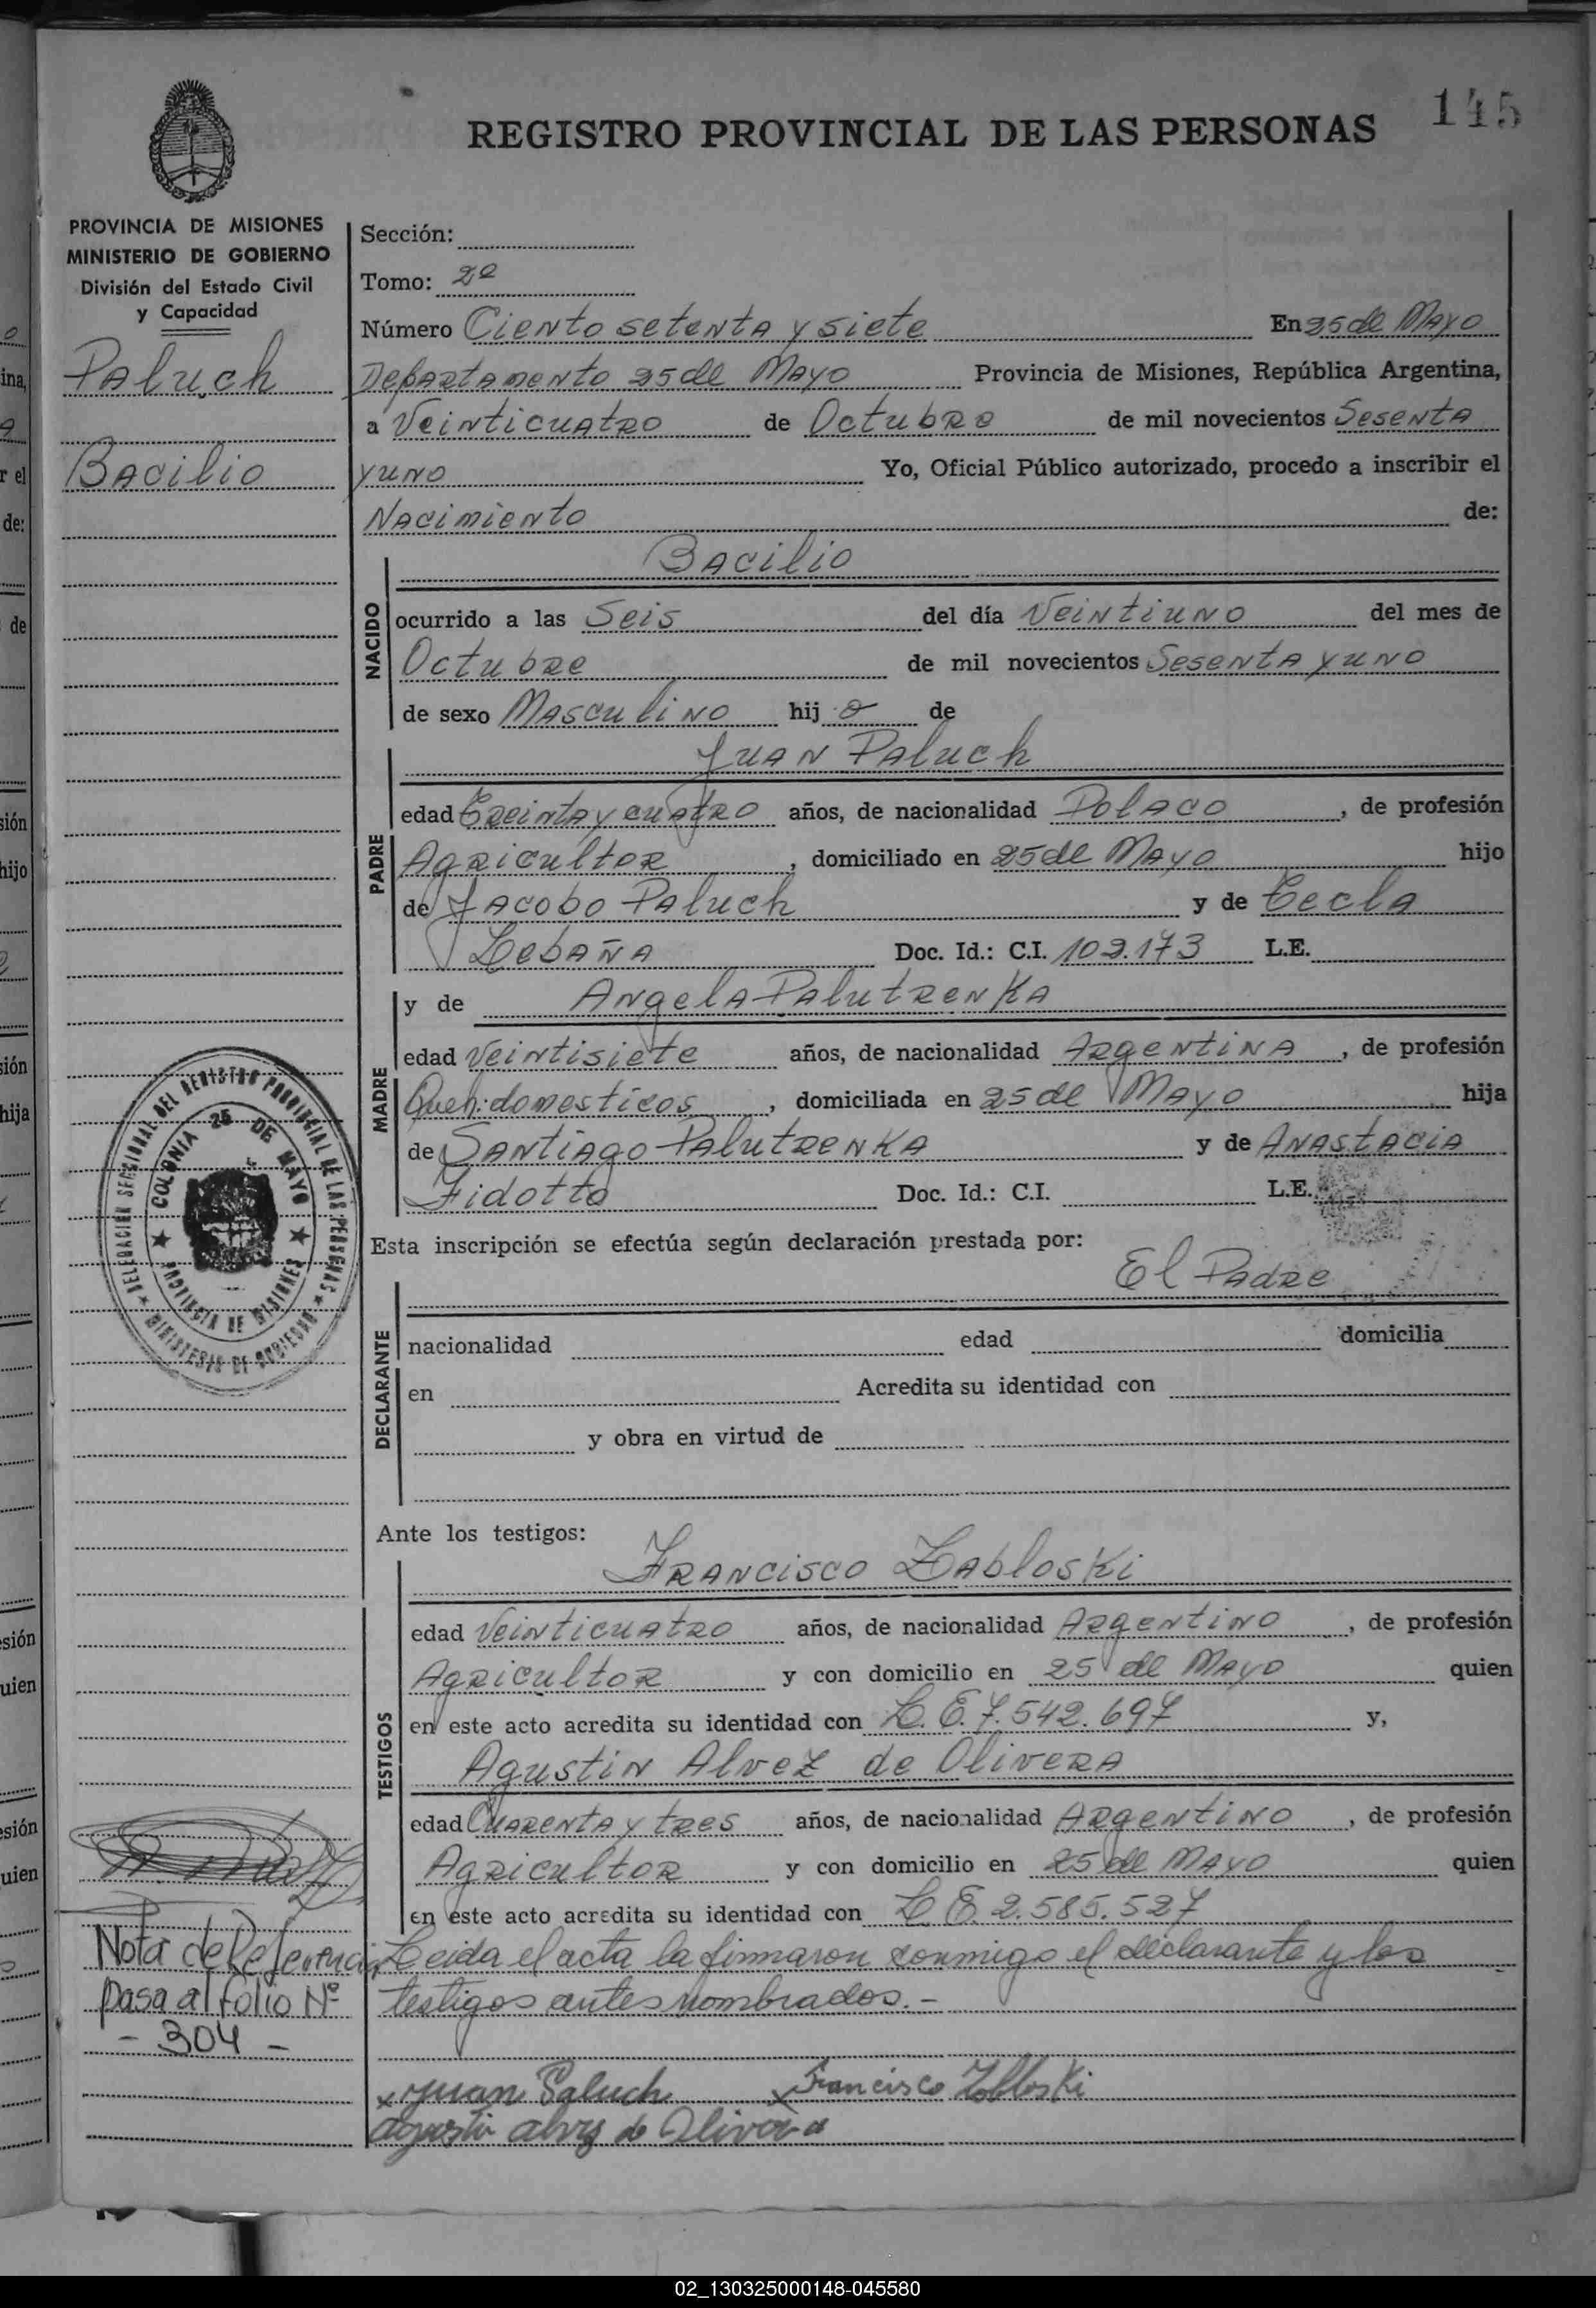 145
REGISTRO PROVINCIAL DE LAS PERSONAS
PROVINCIA DE MISIONES
MINISTERIO DE GOBIERNO
División del Estado Civil
y Capacidad
Paluch
Bacilio
Sección:
Tomo: 2º
Número Ciento setenta y siete En 25 de Mayo
Departamento 25 de Mayo Provincia de Misiones, República Argentina,
a Veinticuatro de Octubre de mil novecientos Sesenta
y uno Yo, Oficial Público autorizado, procedo a inscribir el
Nacimiento de:
NACIDO
Bacilio
ocurrido a las Seis del día Veintiuno del mes de
Octubre de mil novecientos Sesenta y uno
de sexo Masculino hij o de
PADRE
Juan Paluch
edad Treinta y cuatro años, de nacionalidad Polaco, de profesión
Agricultor, domiciliado en 25 de Mayo hijo
de Jacobo Paluch y de Tecla
Lebaña Doc. Id.: C.I. 102.173 L.E.
MADRE
y de Angela Palutrenka
edad Veintisiete años, de nacionalidad Argentina, de profesión
Queh: domesticos, domiciliada en 25 de Mayo hija
de Santiago Palutrenka y de Anastacia
Fidotto Doc. Id.: C.I. L.E.
Esta inscripción se efectúa según declaración prestada por:
DECLARANTE
El Padre
nacionalidad edad domicilia
en Acredita su identidad con
y obra en virtud de
Ante los testigos:
TESTIGOS
Francisco Zabloski
edad Veinticuatro años, de nacionalidad Argentino, de profesión
Agricultor y con domicilio en 25 de Mayo quien
en este acto acredita su identidad con L.E. 7.542.697 y,
Agustin Alvez de Olivera
edad Cuarenta y tres años, de nacionalidad Argentino, de profesión
Agricultor y con domicilio en 25 de Mayo quien
en este acto acredita su identidad con L.E. 2.585.527
Leida el acta la firmaron conmigo el declarante y los
testigos antes nombrados.-
x Juan Paluch x Francisco Zabloski
agustin alvez de Olivera
DELEGACIÓN SECCIONAL DEL REGISTRO PROVINCIAL DE LAS PERSONAS
MINISTERIO DE GOBIERNO
COLONIA 25 DE MAYO
PROVINCIA DE MISIONES
Nota de Referencia
pasa al folio Nº
- 304 -
ina,
r el
de:
de
sión
hijo
sión
hija
sión
uien
sión
uien
02_130325000148-045580